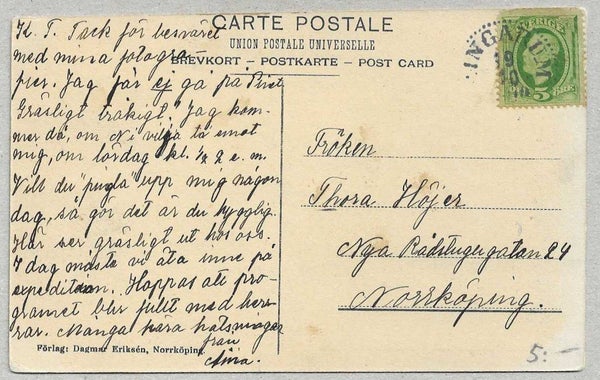 CARTE POSTALE
UNION POSTALE UNIVERSELLE
BREVKORT - POSTKARTE - POST CARD
K. T. Tack för besväret
med mina fotogra-
fier. Jag får ej gå på Piret
Gräsligt tråkigt. Jag kom-
mer då, om Ni vilja ta emot
mig, om lördag kl. 1/2 2 e. m.
Vill du "pugla" upp mig någon
dag, så gör det är du hygglig.
Här ser gräsligt ut hos oss.
I dag måste vi äta inne på
expeditionen. Hoppas att pro-
gramet blir fullt med her-
rar. Många kära hälsningar
från
Aina.
Förlag: Dagmar Eriksén, Norrköping.
SVERIGE
5 ÖRE
Fröken
Thora Höjer
Nya Rådstugugatan 24
Norrköping.
5:-